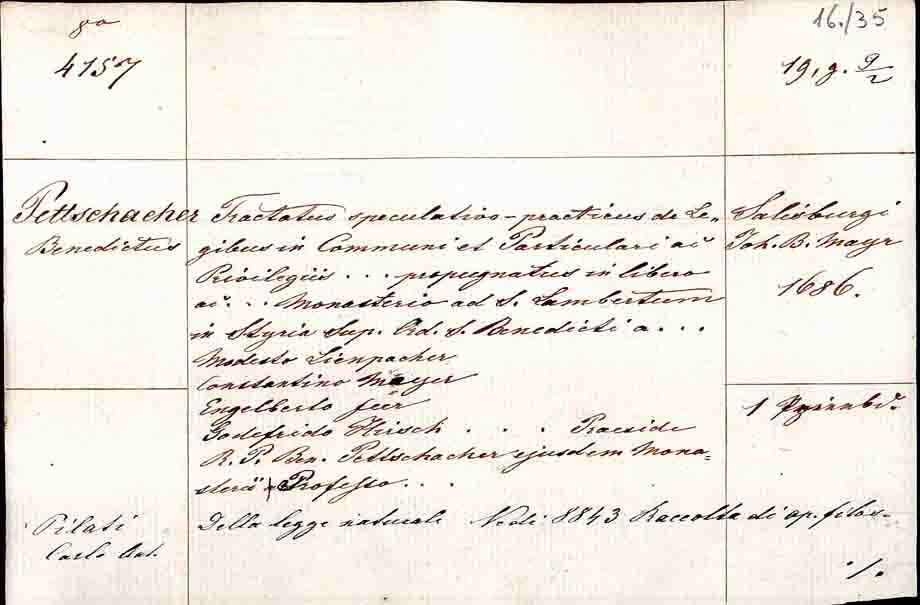 8o
16./35
4157
19, g. 9/2
Pettschacher
Benedictus
Tractatus speculativo-practicus de Le„
gibus in Communi et Particulari ac
Privilegiis . . . propugnatus in libero
ac . . Monasterio ad S. Lambertum
in Styria Sup. Ord. S. Benedicti a . . .
Modesto Lienpacher
Constantino Mayer
Engelberto
Godefrido Hirsch . . . Praeside
R. P. Ben. Pettschacher ejusdem Mona=
sterii Professo . . .
Salisburgi
Joh. B. Mayr
1686.
1
Pilati
Carlo Ant.
Della legge naturale Vedi: 8843 Raccolta di op. filos-
./.